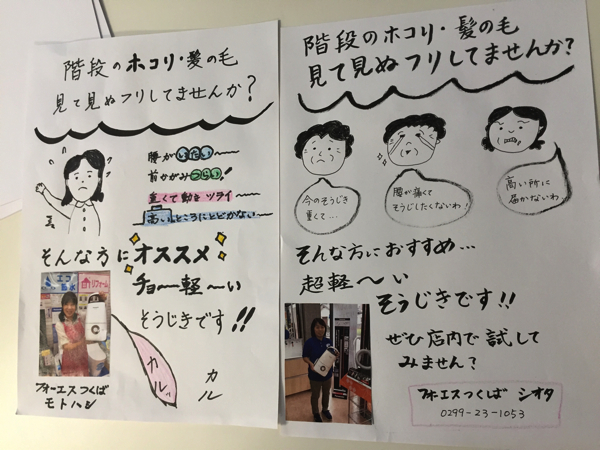 階段のホコリ・髪の毛
見て見ぬフリしてませんか?
腰がいたい
前かがみつらい!
重くて動きツライ
高いところにとどかない
そんな方にオススメ
チョー軽〜い
そうじきです!!
エコ
リフォーム
カル
カル
フォーエスつくば
モトハシ
階段のホコリ・髪の毛
見て見ぬフリしてませんか?
今のそうじき
重くて…
腰が痛くて
そうじしたくないわ!
高い所に
届かないわ…
そんな方におすすめ…
超軽〜い
そうじきです!!
ぜひ店内で試して
みません?
フォーエスつくば シオタ
0299-23-1053